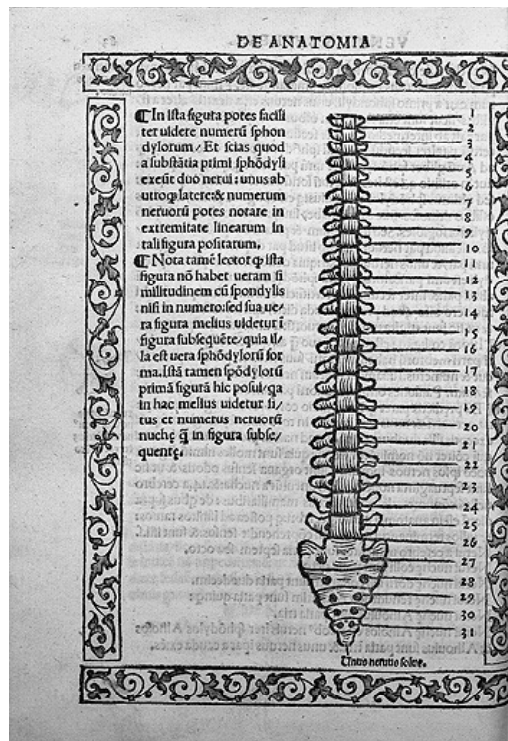 DE ANATOMIA
⁋In ista figura potes facili
ter uidere numerū sphon
dylorum/Et scias quod
a substātia primi sphōdyli
exeūt duo nerui: unus ab
utroq; latere: & numerum
neruorū potes notare in
extremitate linearum in
tali figura positarum.
⁋Nota tamē lector ꝙ ista
figura nō habet ueram si
militudinem cū spondylis
nisi in numero: sed sua ue/
ra figura melius uidetur ī
figura subsequēte/quia il/
la est uera sphōdylorū for
ma. Istā tamen spōdylorū
primā figurā hic posui/qa
in hac melius uidetur si/
tus et numerus neruorū
nuchę q̄ in figura subse/
quentę.
1
2
3
4
5
6
7
8
9
10
11
12
13
14
15
16
17
18
19
20
21
22
23
24
25
26
27
28
29
30
31
Unus neruus solus.